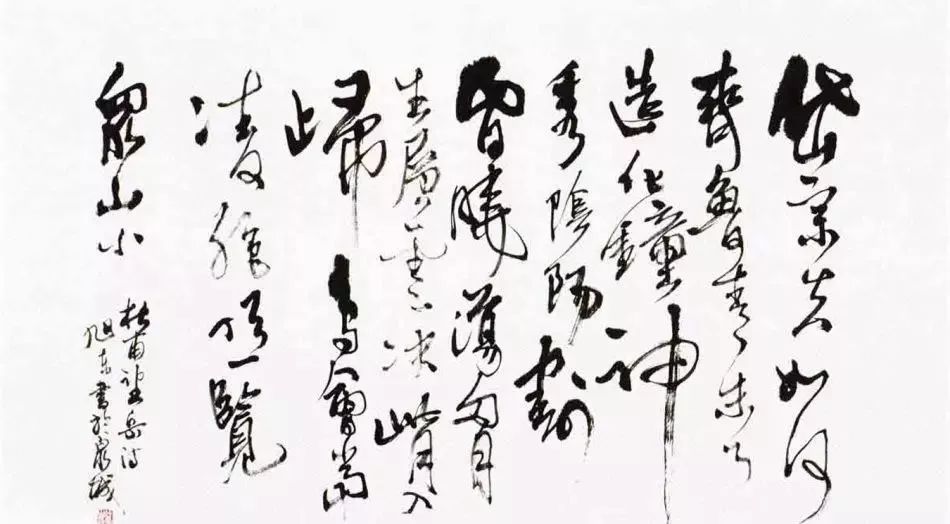 岱宗夫如何
齊魯青未了
造化鐘神
秀陰陽割
昏曉蕩胸
生層雲决眥入
歸鳥會當
凌絕頂一覽
眾山小
杜甫望岳詩
旭東書於泉城